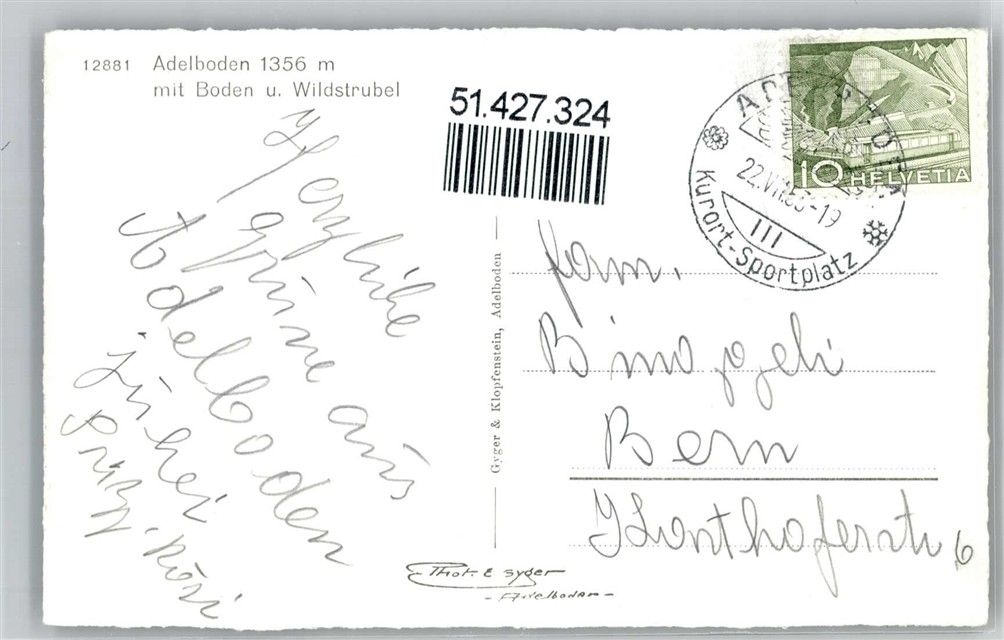 12881 Adelboden 1356 m
mit Boden u. Wildstrubel
51.427.324
10 HELVETIA
ADELBODEN
22.VII.55-19
III
Kurort-Sportplatz
Herzliche
Grüsse aus
Adelboden
Fritz
Gyger & Klopfenstein, Adelboden
Fam.
Binggeli
Bern
6
Phot. E Gyger
- Adelboden -